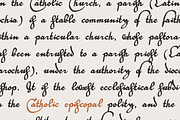 the Catholic Church, a parish (Latin
ochus) of a stable community of the faith
within a particular church, whose pastora
been entrusted to a parish priest (Latin
parochus), under the authority of the dioce
hop. It is the lowest ecclesiastical subdi
n the Catholic episcopal polity, and the